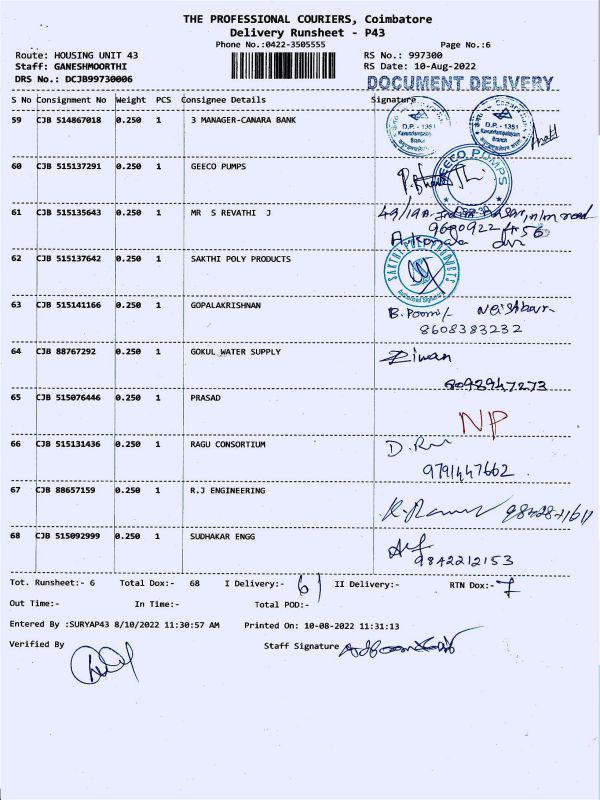 THE PROFESSIONAL COURIERS, Coimbatore
Delivery Runsheet - P43
Phone No.:0422-3505555
Page No.:6
Route: HOUSING UNIT 43
RS No.: 997300
Staff: GANESHMOORTHI
RS Date: 10-Aug-2022
DRS No.: DCJB99730006
DOCUMENT DELIVERY
S No Consignment No Weight PCS Consignee Details Signature
59 CJB 514867018 0.250 1 3 MANAGER-CANARA BANK
D.P. - 1351 D.P. - 1351
Branch Branch
60 CJB 515137291 0.250 1 GEECO PUMPS
GEECO PUMPS
61 CJB 515135643 0.250 1 MR S REVATHI J
62 CJB 515137642 0.250 1 SAKTHI POLY PRODUCTS
SAKTHI POLY PRODUCTS
63 CJB 515141166 0.250 1 GOPALAKRISHNAN
8608383232
64 CJB 88767292 0.250 1 GOKUL WATER SUPPLY
8098947273
65 CJB 515076446 0.250 1 PRASAD
NP
66 CJB 515131436 0.250 1 RAGU CONSORTIUM
9791447662
67 CJB 88657159 0.250 1 R.J ENGINEERING
68 CJB 515092999 0.250 1 SUDHAKAR ENGG
9842212153
Tot. Runsheet:- 6 Total Dox:- 68 I Delivery:- 61 II Delivery:- RTN Dox:- 7
Out Time:- In Time:- Total POD:-
Entered By :SURYAP43 8/10/2022 11:30:57 AM Printed On: 10-08-2022 11:31:13
Verified By Staff Signature